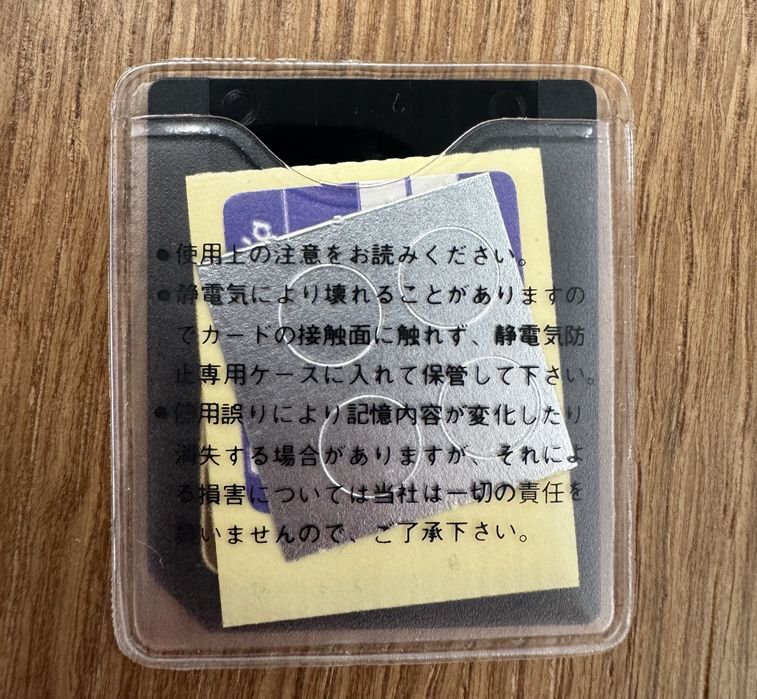 ●使用上の注意をお読みください。
●静電気により壊れることがありますの
でカードの接触面に触れず、静電気防
止専用ケースに入れて保管して下さい。
●使用誤りにより記憶内容が変化したり
消失する場合がありますが、それによ
る損害については当社は一切の責任を
負いませんので、ご了承下さい。